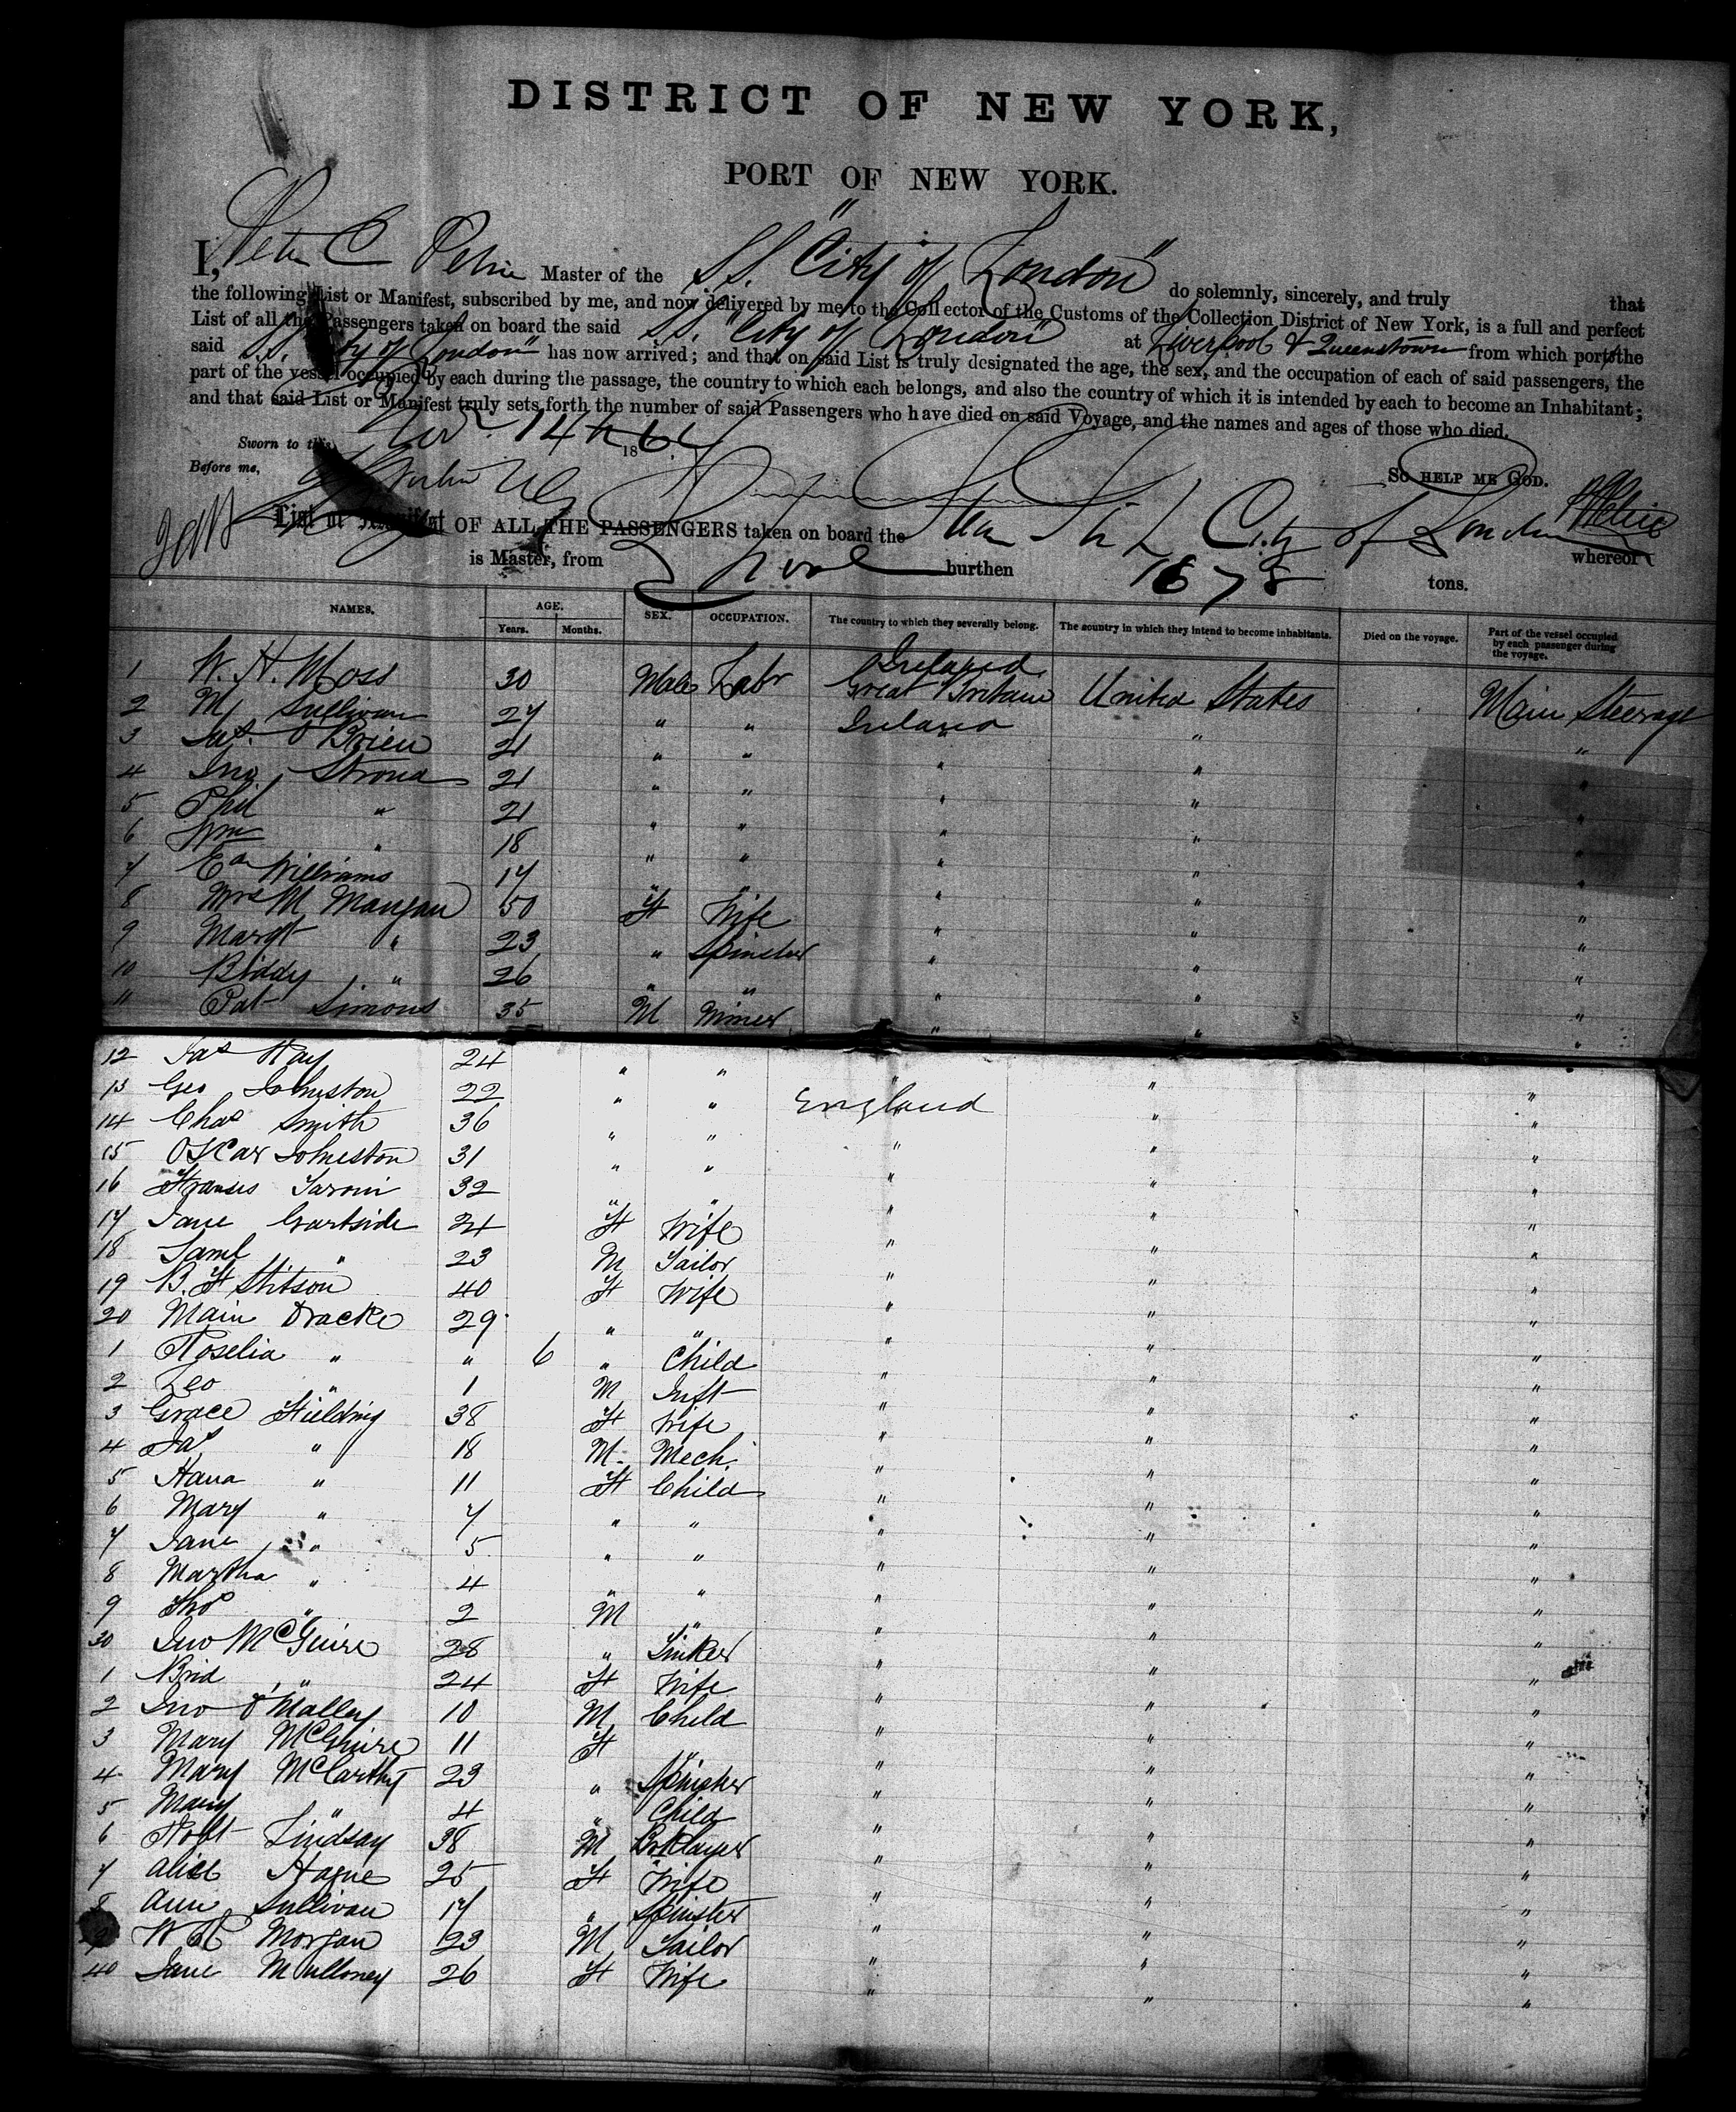 DISTRICT OF NEW YORK,
PORT OF NEW YORK.
I, Peter C Petrie Master of the S.S. "City of London" do solemnly, sincerely, and truly that
the following List or Manifest, subscribed by me, and now delivered by me to the Collector of the Customs of the Collection District of New York, is a full and perfect
List of all the Passengers taken on board the said S.S. "City of London" at Liverpool & Queenstown from which port/the
said S.S. "City of London" has now arrived; and that on said List is truly designated the age, the sex, and the occupation of each of said passengers, the
part of the vessel occupied by each during the passage, the country to which each belongs, and also the country of which it is intended by each to become an Inhabitant;
and that said List or Manifest truly sets forth the number of said Passengers who have died on said Voyage, and the names and ages of those who died.
Sworn to this 14th 186
Before me, SO HELP ME GOD.
List or Manifest OF ALL THE PASSENGERS taken on board the Steam Ship City of London whereof
is Master, from burthen 1678 tons.
NAMES. AGE. SEX. OCCUPATION. The country to which they severally belong. The country in which they intend to become inhabitants. Died on the voyage. Part of the vessel occupied by each passenger during the voyage.
Years. Months.
Ireland
1 W. H. Moss 30 Male Labr Great Britain United States Main Steerage
2 M Sullivan 27 " " Ireland " "
3 Jas. O'Brien 21 " " " " "
4 Jno Stroud 21 " " " " "
5 Phil " 21 " " " " "
6 Wm " 18 " " " " "
7 Ed Williams 17 " " " " "
8 Mrs M Mangan 50 F Wife " " "
9 Margt " 23 " Spinster " " "
10 Biddy " 26 " " " " "
11 Pat Simons 35 M Miner " " "
12 Jas Hay 24 " " " " "
13 Geo Johnston 22 " " England " "
14 Chas Smith 36 " " " " "
15 Oscar Johnston 31 " " " " "
16 Francis 32 " " " " "
17 Jane Gartside 24 F Wife " " "
18 Saml " 23 M Tailor " " "
19 B. F Stitson 40 F Wife " " "
20 Main Dracke 29 " " " " "
1 Roselia " " 6 " Child " " "
2 Leo " 1 M Inft " " "
3 Grace Fielding 38 F Wife " " "
4 Jas " 18 M. Mech. " " "
5 Hana " 11 F Child " " "
6 Mary " 7 " " " " "
7 Jane " 5 " " " " "
8 Martha " 4 " " " " "
9 Thos " 2 M " " " "
30 Jno McGuire 28 " Tinker " " "
1 Brid " 24 F Wife " " "
2 Jno O'Malley 10 M Child " " "
3 Mary McGuire 11 F " " " "
4 Mary McCarthy 23 " Spinster " " "
5 Mary " 4 " Child " " "
6 Robt Lindsay 38 M Brklayer " " "
7 Alice Hague 25 F Wife " " "
8 Ann Sullivan 17 " Spinster " " "
9 W H Morgan 23 M Tailor " " "
40 Jane Mulloney 26 F Wife " " "